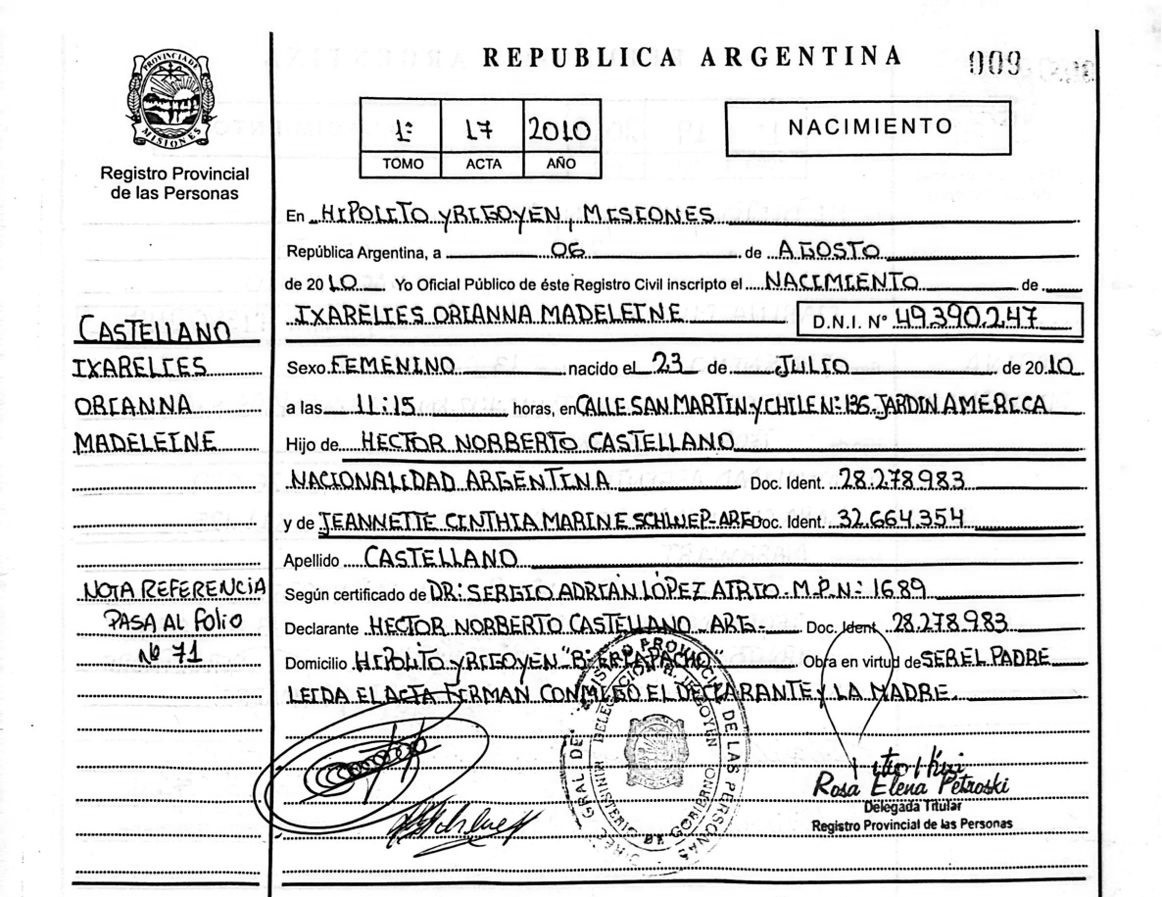 REPUBLICA ARGENTINA
009
PROVINCIA DE MISIONES
Registro Provincial
de las Personas
1º 17 2010
TOMO ACTA AÑO
NACIMIENTO
En HIPOLITO YRIGOYEN, MISIONES
República Argentina, a 06 de AGOSTO
de 2010 Yo Oficial Público de éste Registro Civil inscripto el NACIMIENTO de
IXARELIES ORIANNA MADELEINE D.N.I. Nº 49.390.247
Sexo FEMENINO nacido el 23 de JULIO de 2010
a las 11:15 horas, en CALLE SAN MARTIN Y CHILE Nº 136 JARDIN AMERICA
Hijo de HECTOR NORBERTO CASTELLANO
NACIONALIDAD ARGENTINA Doc. Ident. 28.278.983
y de JEANNETTE CINTHIA MARINE SCHWEP-ARG Doc. Ident. 32.664.354
Apellido CASTELLANO
Según certificado de DR: SERGIO ADRIÁN LÓPEZ AIRIO. M.P.N: 1689
Declarante HECTOR NORBERTO CASTELLANO ARG- Doc. Ident. 28.278.983
Domicilio HIPOLITO YRIGOYEN "Bº EL LAPACHO" Obra en virtud de SER EL PADRE
LEIDA EL ACTA FIRMAN CONMIGO EL DECLARANTE Y LA MADRE.
CASTELLANO
IXARELIES
ORIANNA
MADELEINE
NOTA REFERENCIA
PASA AL Folio
Nº 71
DELEGACION H. IRIGOYEN
MINISTERIO DE GOBIERNO
Rosa Elena Petroski
Delegada Titular
Registro Provincial de las Personas